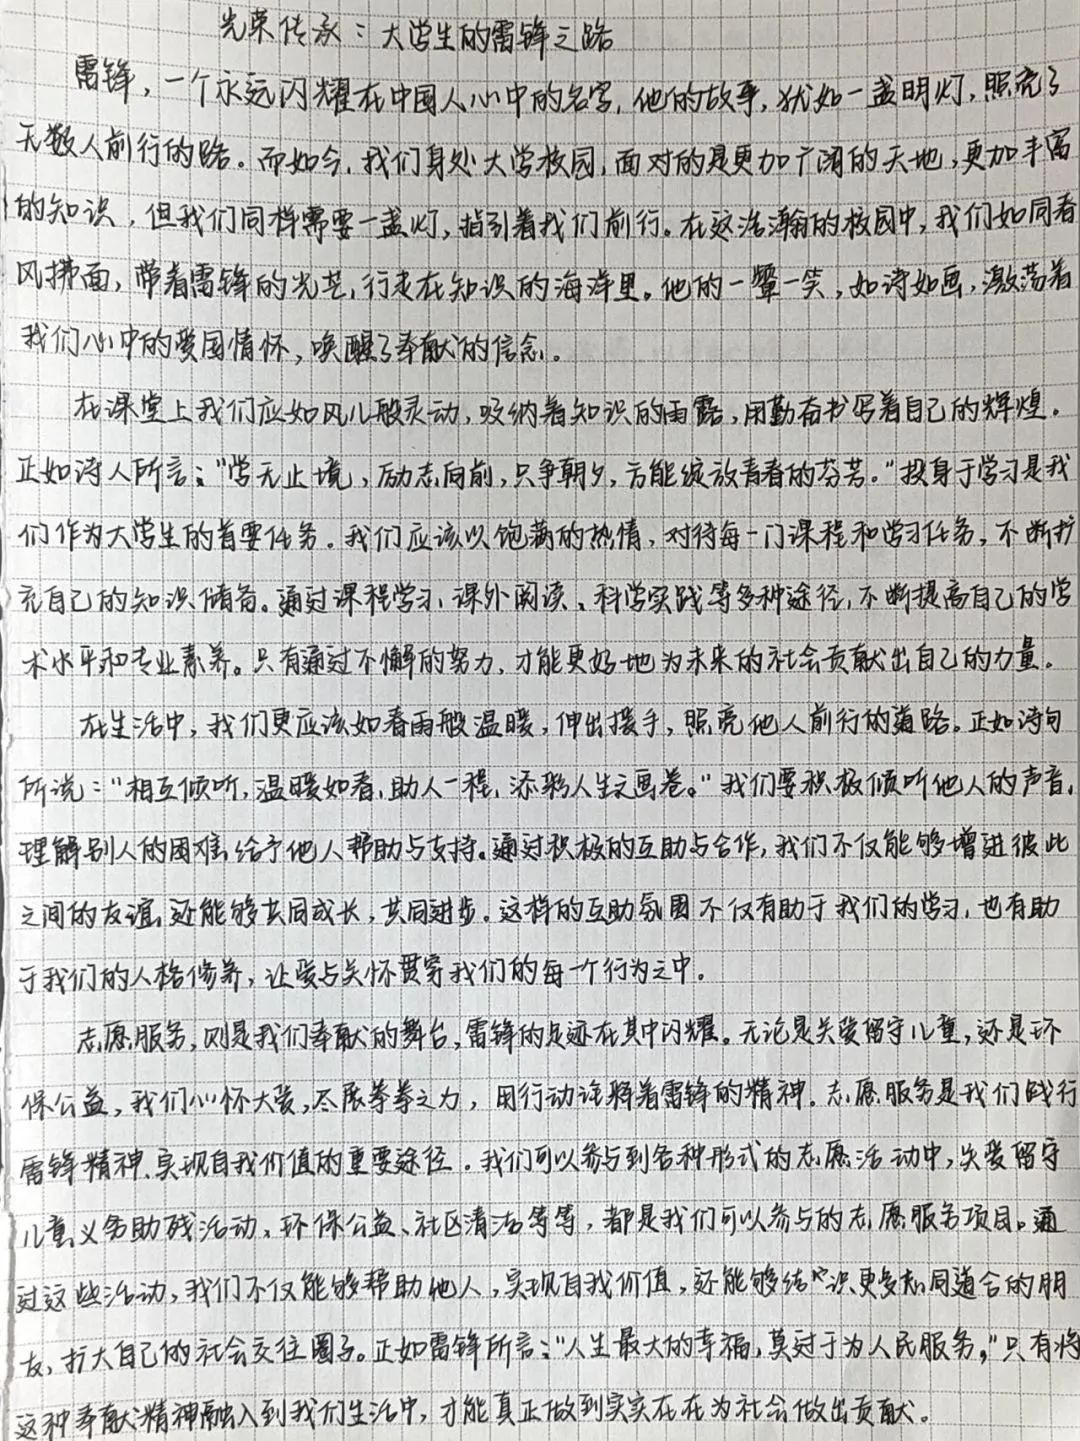 光荣传承：大学生的雷锋之路
雷锋，一个永远闪耀在中国人心中的名字，他的故事，犹如一盏明灯，照亮了
无数人前行的路。而如今，我们身处大学校园，面对的是更加广阔的天地，更加丰富
的知识，但我们同样需要一盏灯，指引着我们前行。在这浩瀚的校园中，我们如同春
风拂面，带着雷锋的光芒，行走在知识的海洋里。他的一颦一笑，如诗如画，激荡着
我们心中的爱国情怀，唤醒了奉献的信念。
在课堂上我们应如风儿般灵动，吸纳着知识的雨露，用勤奋书写着自己的辉煌。
正如诗人所言："学无止境，励志向前，只争朝夕，方能绽放青春的芬芳。"投身于学习是我
们作为大学生的首要任务。我们应该以饱满的热情，对待每一门课程和学习任务，不断扩
充自己的知识储备。通过课程学习、课外阅读、科学实践等多种途径，不断提高自己的学
术水平和专业素养。只有通过不懈的努力，才能更好地为未来的社会贡献出自己的力量。
在生活中，我们更应该如春雨般温暖，伸出援手，照亮他人前行的道路。正如诗句
所说："相互倾听，温暖如春，助人一程，添彩人生之画卷。"我们要积极倾听他人的声音，
理解别人的困难，给予他人帮助与支持。通过积极的互助与合作，我们不仅能够增进彼此
之间的友谊，还能够共同成长，共同进步。这样的互助氛围不仅有助于我们的学习，也有助
于我们的人格修养，让爱与关怀贯穿我们的每一个行为之中。
志愿服务，则是我们奉献的舞台，雷锋的足迹在其中闪耀。无论是关爱留守儿童，还是环
保公益，我们心怀大爱，尽展拳拳之力，用行动诠释着雷锋的精神。志愿服务是我们践行
雷锋精神、实现自我价值的重要途径。我们可以参与到各种形式的志愿活动中，关爱留守
儿童、义务助残活动、环保公益、社区清洁等等，都是我们可以参与的志愿服务项目。通
过这些活动，我们不仅能够帮助他人，实现自我价值，还能够结识更多志同道合的朋
友，扩大自己的社会交往圈子。正如雷锋所言："人生最大的幸福，莫过于为人民服务。"只有将
这种奉献精神融入到我们生活中，才能真正做到实实在在为社会做出贡献。